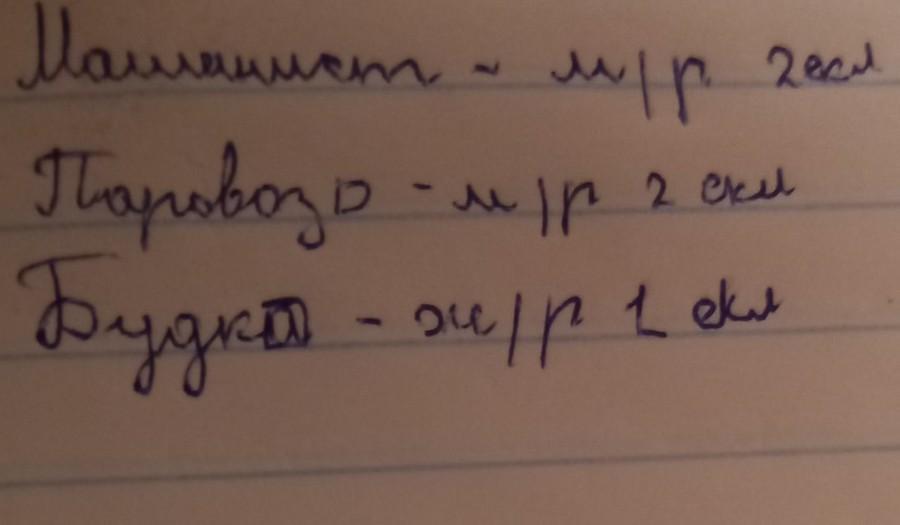 Машинист - м/р 2 скл
Паровоз - м/р 2 скл
Будка - ж/р 1 скл